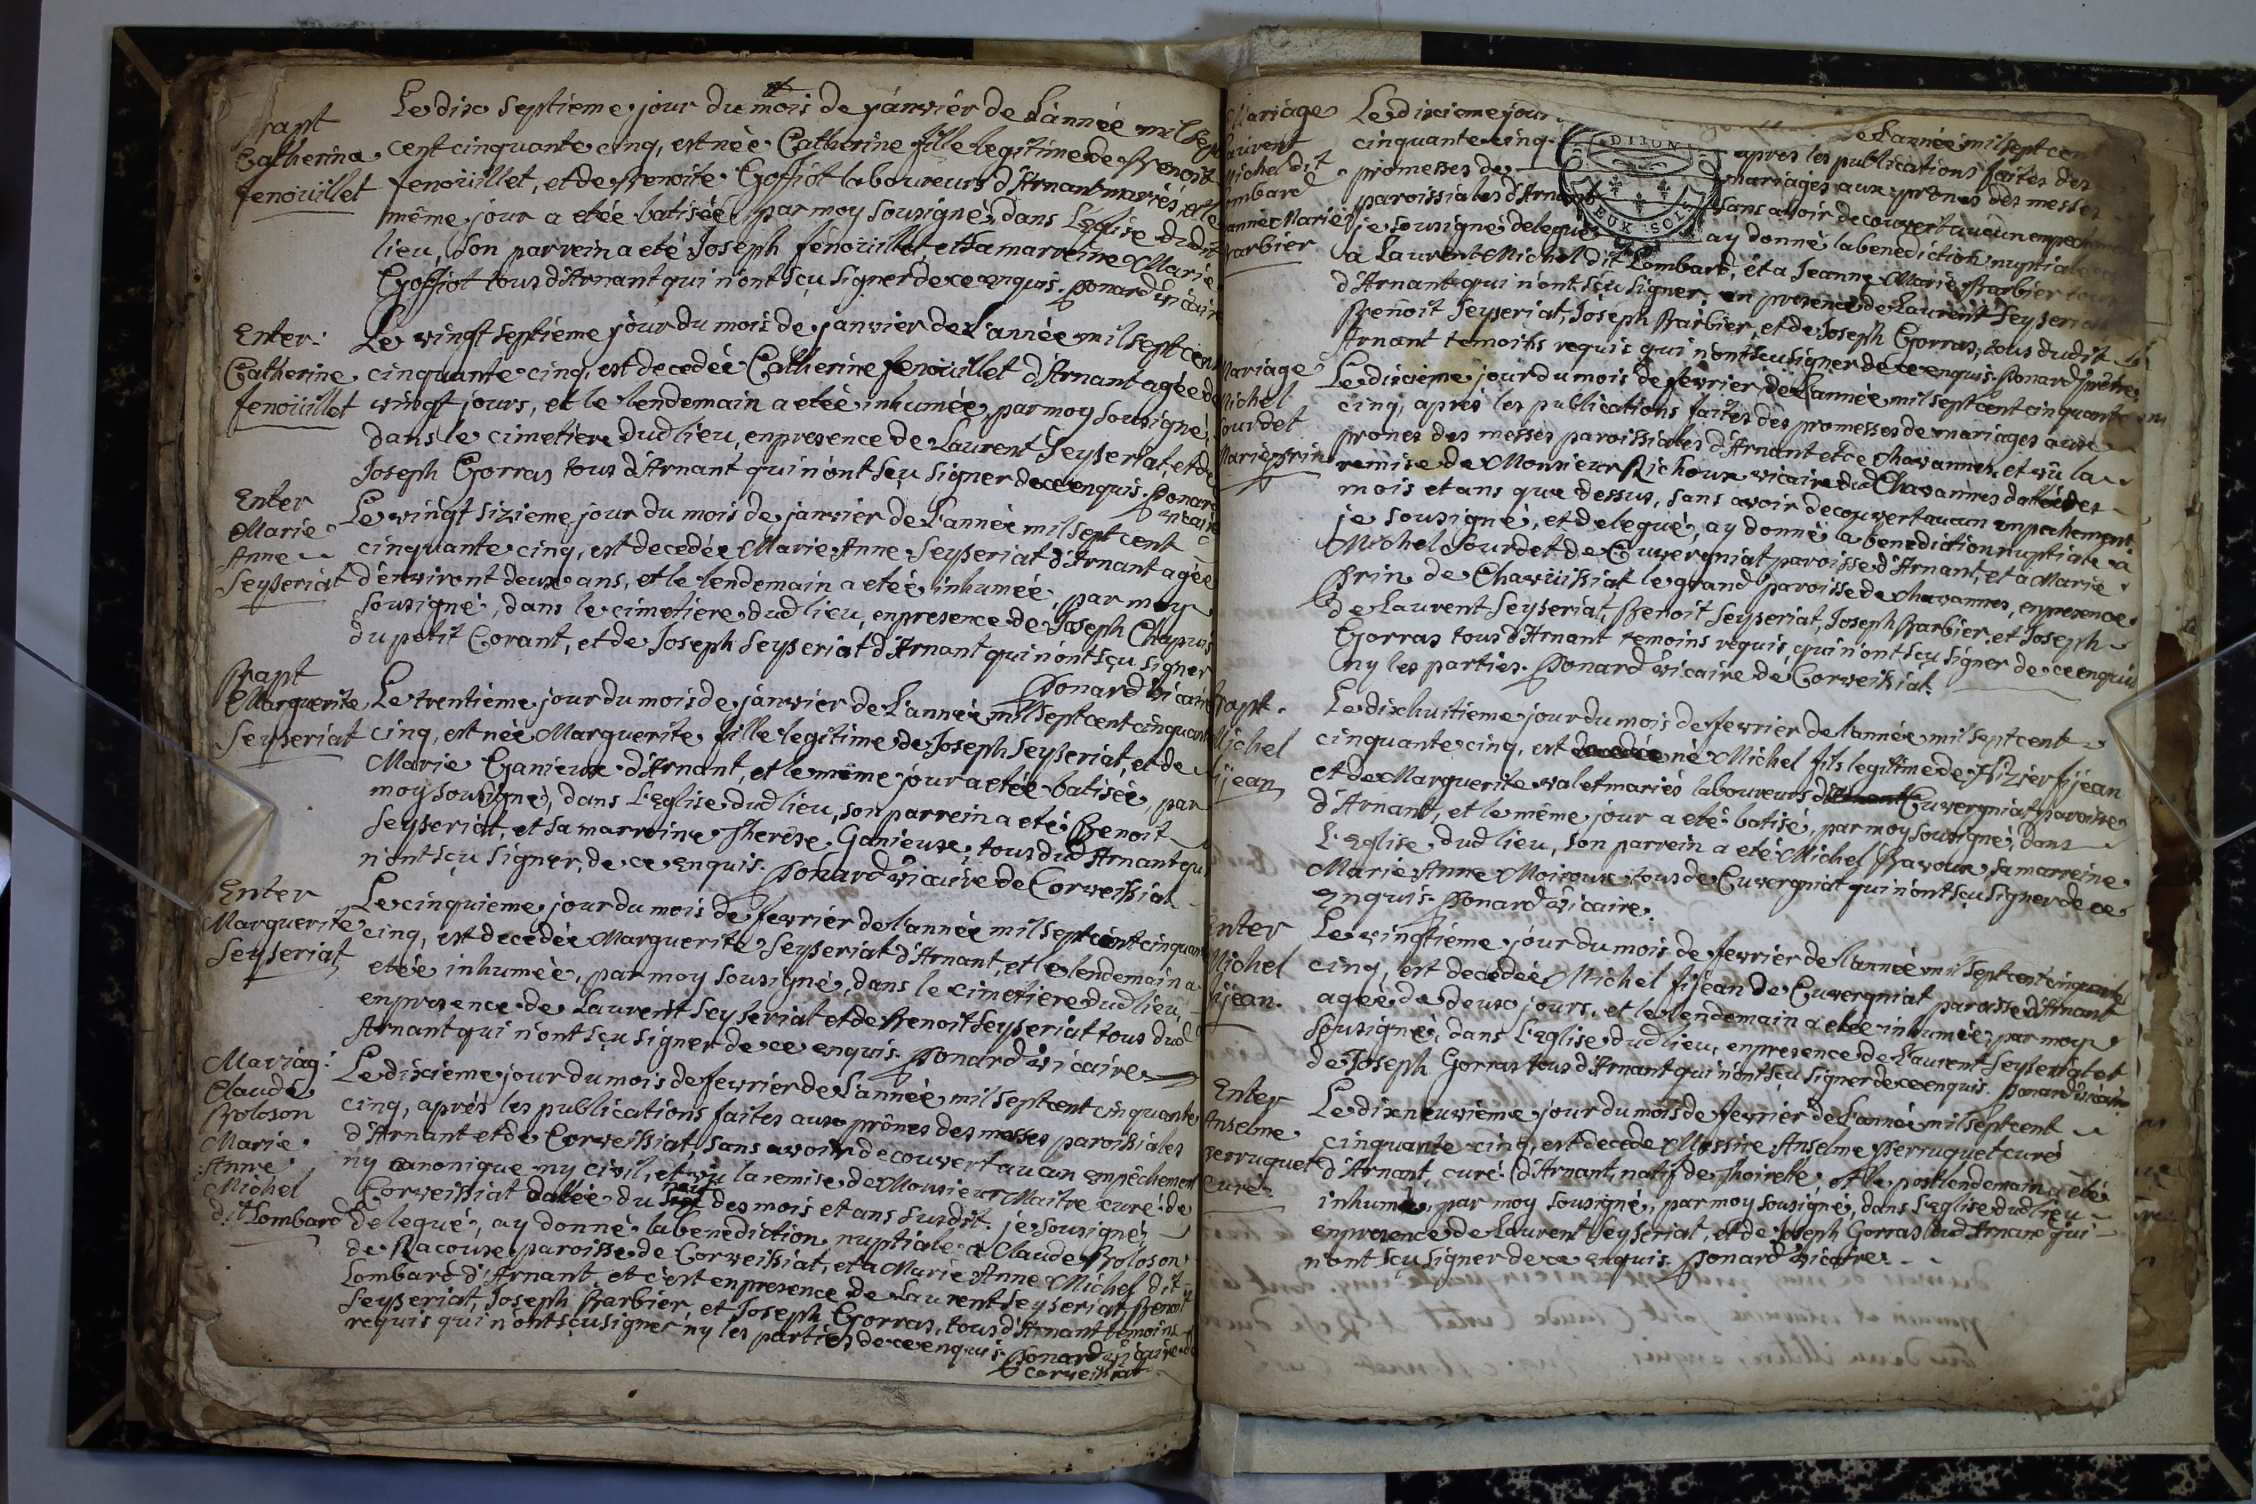 Bapt
Catherine
fenoüillet
Le dix septieme jour du mois de janvier de L'année mil sept
cent cinquante cinq, est née Catherine fille legitime de Benoit
fenoüillet, et de Benoite Goffiot laboureurs d'Arnant mariés, et le
même jour a etée batisée par moy sousigné, dans L'Eglise dudit
lieu, son parrein a eté Joseph fenoüillet, et sa marreine Marie
Goffiot tous d'Arnant qui n'ont sçu signer de ce enquis. Ponard vicaire
Enter:
Catherine
fenoüillet
Le vingt septieme jour du mois de janvier de L'année mil sept cent
cinquante cinq, est decedée Catherine fenoüillet d'Arnant agée de
vingt jours, et le lendemain a etée inhumée, par moy sousigné,
dans le cimetiere dud lieu, en presence de Laurent Seyseriat, et de
Joseph Gorras tous d'Arnant qui n'ont sçu signer de ce enquis. Ponard
vicaire
Enter
Marie
Anne
Seyseriat
Le vingt sixieme jour du mois de janvier de L'année mil sept cent
cinquante cinq, est decedée Marie Anne Seyseriat d'Arnant agée
d'environt deux ans, et le lendemain a etée inhumée, par moy
sousigné, dans le cimetiere dud lieu, en presence de Joseph Chapuis
du petit Corant, et de Joseph Seyseriat d'Arnant qui n'ont sçu signer
Ponard vicaire
Bapt
Marguerite
Seyseriat
Le trentième jour du mois de janvier de L'année mil sept cent cinquante
cinq, est née Marguerite fille legitime de Joseph Seyseriat, et de
Marie Ganieux d'Arnant, et le même jour a etée batisée, par
moy sousigné, dans L'Eglise dud lieu, son parrein a eté Benoit
Seyseriat, et sa marreine Therèse Ganieux, tous dud Arnant qui
n'ont sçu signer, de ce enquis. Ponard vicaire de Corveissiat
Enter
Marguerite
Seyseriat
Le cinquieme jour du mois de fevrier de L'année mil sept cent cinquante
cinq, est decedée Marguerite Seyseriat d'Arnant, et le lendemain a
etée inhumée, par moy sousigné, dans le cimetiere dud lieu,
en presence de Laurent Seyseriat et de Benoit Seyseriat tous dud
Arnant qui n'ont sçu signer de ce enquis. Ponard vicaire
Mariag:
Claude
Boloson
Marie
Anne
Michel
dit Lombard
Le dixieme jour du mois de fevrier de L'année mil sept cent cinquante
cinq, après les publications faites aux prônes des messes paroissiales
d'Arnant et de Corveissiat, sans avoir decouvert aucun empêchement
ny canonique ny civil, et vû la remise de Monsieur Maitre curé de
Corveissiat datée du des mois et ans susdit. je sousigné
delegué, ay donné la benediction nuptiale a Claude Boloson
de Racouse paroisse de Corveissiat, et a Marie Anne Michel dit
Lombard d'Arnant, et c'est en presence de Laurent Seyseriat, Benoit
Seyseriat, Joseph Barbier, et Joseph Gorras, tous d'Arnant temoins
requis qui n'ont sçu signer ny les parties de ce enquis. Ponard vicaire de
Corveissiat
Mariage
Laurent
Michel dit
Lombard
Jeanne Marie
Barbier
Le dixieme jour de L'année mil sept cent
cinquante cinq après les publications faites des
promesses de mariages aux prônes des messes
paroissiales d'Arnant sans avoir decouvert aucun empechement
je sousigné delegué ay donné la benediction nuptiale
a Laurent Michel dit Lombard, et a Jeanne Marie Barbier tous
d'Arnant qui n'ont sçu signer, en presence de Laurent Seyseriat
Benoit Seyseriat, Joseph Barbier, et de Joseph Gorras, tous dudit
Arnant temoins requis qui n'ont sçu signer de ce enquis. Ponard prêtre
DIJON
DEUX SOLS
Mariage
Michel
Sourdet
Marie Brin
Le dixieme jour du mois de fevrier de L'année mil sept cent cinquante
cinq, après les publications faites des promesses de mariages aux
prones des messes paroissiales d'Arnant et de Chavannes, et vû la
remise de Monsieur Richoux vicaire dud Chavannes datée des
mois et ans que dessus, sans avoir decouvert aucun empechement
je sousigné, et delegué, ay donné la benediction nuptiale a
Michel Sourdet de Cuvergniat paroisse d'Arnant, et a Marie
Brin de Chavuissiat le grand paroisse de Chavannes, en presence
de Laurent Seyseriat, Benoit Seyseriat, Joseph Barbier, et Joseph
Gorras tous d'Arnant temoins requis, qui n'ont sçu signer de ce enquis
ny les parties. Ponard vicaire de Corveissiat.
Bapt.
Michel
fijean
Le dixhuitieme jour du mois de fevrier de L'année mil sept cent
cinquante cinq, est né Michel fils legitime de fijean
et de Marguerite Valet mariés laboureurs Cuvergniat paroisse
d'Arnant, et le même jour a eté batisé, par moy sousigné, dans
L'Eglise dud lieu, son parrein a eté Michel Bavoux sa marreine
Marie Anne Moiroux tous de Cuvergniat qui n'ont sçu signer de ce
enquis. Ponard vicaire.
Enter
Michel
fijean.
Le vingtieme jour du mois de fevrier de L'année mil sept cent cinquante
cinq, est decedée Michel fijean de Cuvergniat paroisse d'Arnant
agée de deux jours, et le lendemain a etée inhumée, par moy
sousigné, dans L'Eglise dud lieu, en presence de Laurent Seyseriat et
de Joseph Gorras tous d'Arnant qui n'ont sçu signer de ce enquis. Ponard vicaire
Enter
Anselme
perruquet
curé
Le dixneuvième jour du mois de fevrier de L'année mil sept cent
cinquante cinq, est decedé Messire Anselme Perruquet curé
d'Arnant, curé d'Arnant, natif de Thoirette, et le postlendemain a eté
inhumé, par moy sousigné, par moy sousigné, dans L'Eglise dud lieu
en presence de Laurent Seyseriat, et de Joseph Gorras dud Arnant qui
n'ont sçu signer de ce enquis. Ponard vicaire.